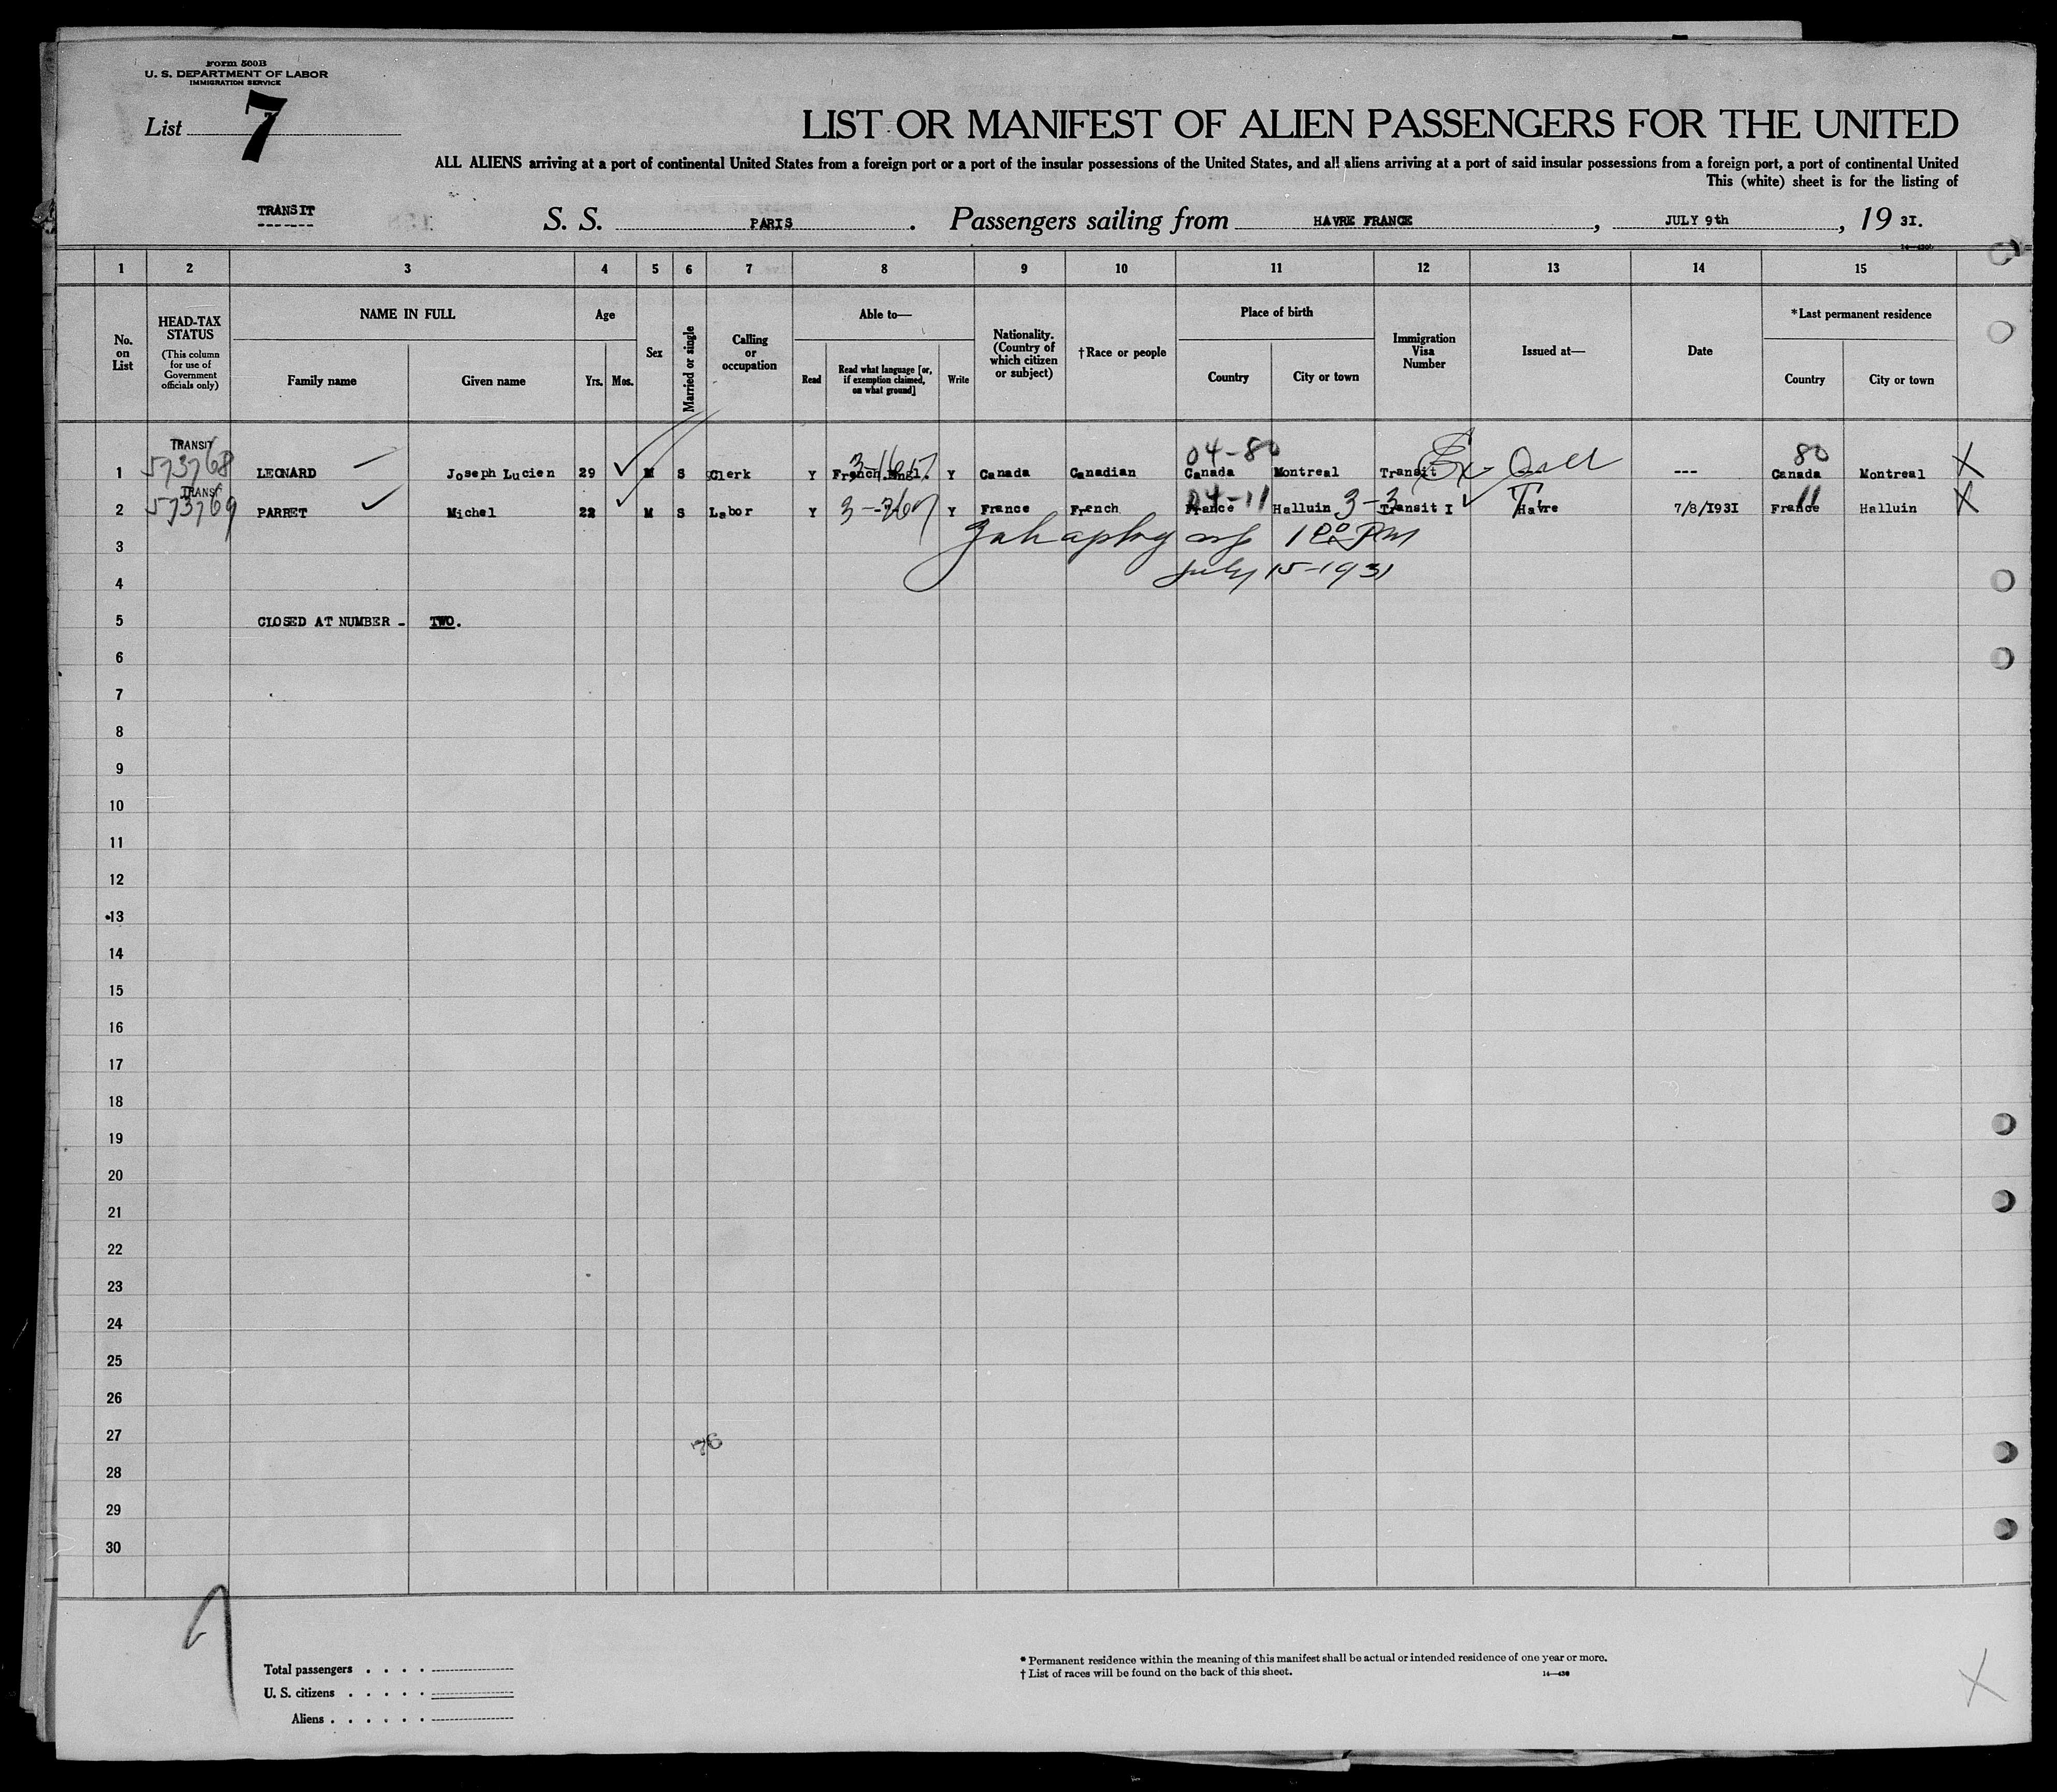 Form 500B
U. S. DEPARTMENT OF LABOR
IMMIGRATION SERVICE
List 7
LIST OR MANIFEST OF ALIEN PASSENGERS FOR THE UNITED
ALL ALIENS arriving at a port of continental United States from a foreign port or a port of the insular possessions of the United States, and all aliens arriving at a port of said insular possessions from a foreign port, a port of continental United
This (white) sheet is for the listing of
TRANSIT S. S. PARIS. Passengers sailing from HAVRE FRANCE, JULY 9th, 19 3I.
1 2 3 4 5 6 7 8 9 10 11 12 13 14 15
No. on List
HEAD-TAX STATUS
(This column for use of Government officials only)
NAME IN FULL
Family name
Given name
Age
Yrs.
Mos.
Sex
Married or single
Calling or occupation
Able to—
Read
Read what language [or, if exemption claimed, on what ground]
Write
Nationality. (Country of which citizen or subject)
†Race or people
Place of birth
Country
City or town
Immigration Visa Number
Issued at—
Date
*Last permanent residence
Country
City or town
TRANSIT 04-80 80
1 573768 LEONARD Joseph Lucien 29 M S Clerk Y French.Engl. Y Canada Canadian Canada Montreal Transit --- Canada Montreal X
TRANSIT 04-11 11
2 573769 PARRET Michel 22 M S Labor Y Y France French France Halluin 3-3 Transit I Havre 7/8/I93I France Halluin X
3
July 15-1931
4
5 CLOSED AT NUMBER - TWO.
6
7
8
9
10
11
12
13
14
15
16
17
18
19
20
21
22
23
24
25
26
27
76
28
29
30
Total passengers . . . .
U. S. citizens . . . . .
Aliens . . . . . .
* Permanent residence within the meaning of this manifest shall be actual or intended residence of one year or more.
† List of races will be found on the back of this sheet.
14—430
X